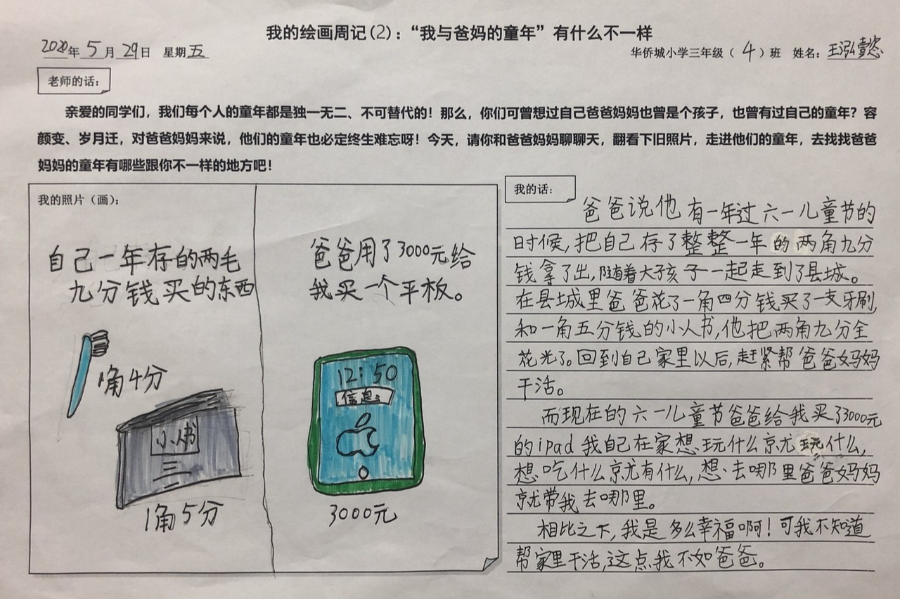 我的绘画周记(2)：“我与爸妈的童年”有什么不一样
2020年5月29日 星期五 华侨城小学三年级（4）班 姓名：王泓懿
老师的话：
亲爱的同学们，我们每个人的童年都是独一无二、不可替代的！那么，你们可曾想过自己爸爸妈妈也曾是个孩子，也曾有过自己的童年？容
颜变、岁月迁，对爸爸妈妈来说，他们的童年也必定终生难忘呀！今天，请你和爸爸妈妈聊聊天，翻看下旧照片，走进他们的童年，去找找爸爸
妈妈的童年有哪些跟你不一样的地方吧！
我的照片（画）：
自己一年存的两毛
九分钱买的东西
1角4分
小人书
1角5分
爸爸用了3000元给
我买一个平板。
12:50
信息。
3000元
我的话：
爸爸说他有一年过六一儿童节的
时候，把自己存了整整一年的两角九分
钱拿了出，随着大孩子一起走到了县城。
在县城里爸爸花了一角四分钱买了一支牙刷
和一角五分钱的小人书，他把两角九分全
花光了。回到自己家里以后，赶紧帮爸爸妈妈
干活。
而现在的六一儿童节爸爸给我买了3000元
的ipad我自己在家想玩什么就玩什么，
想吃什么就有什么，想去哪里爸爸妈妈
就带我去哪里。
相比之下，我是多么幸福啊！可我不知道
帮家里干活，这点我不如爸爸。